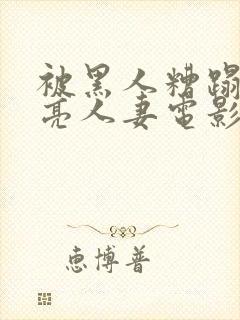 被黑人糟蹋
亮人妻电影
惠博普